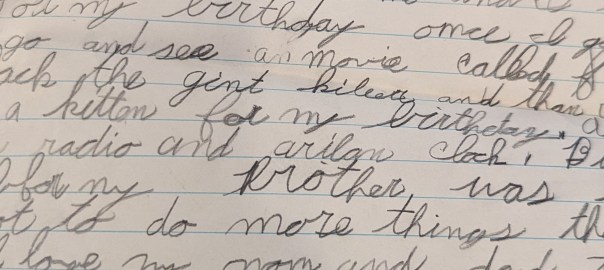 my birthday once I g
go and see an movie called
ack the gint kileer and than
a kitten for my birthday. a
radio and arilan clock, B
for my brother was
ot to do more things th
love my mom and dad